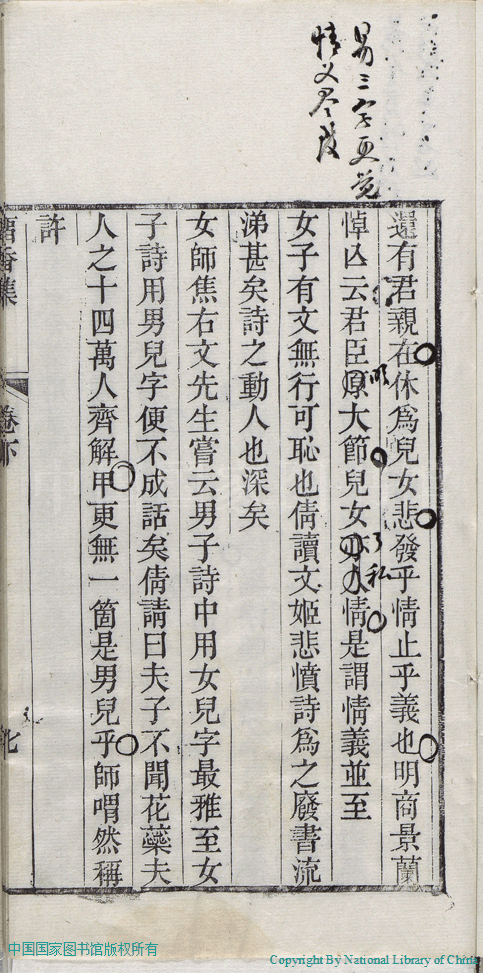 易三字更覺
情义
還有君親在休爲兒女悲發乎情止乎義也明商景蘭
悼亾云君臣原大節兒女亦人情是謂情義並至
明
了私
女子有文無行可恥也倩讀文姬悲憤詩爲之廢書流
涕甚矣詩之動人也深矣
女師焦右文先生嘗云男子詩中用女兒字最雅至女
子詩用男兒字便不成話矣倩請曰夫子不聞花蘂夫
人之十四萬人齊解甲更無一箇是男兒乎師喟然稱
許
香集
卷下
中国国家图书馆版权所有
Copyright By National Library of China